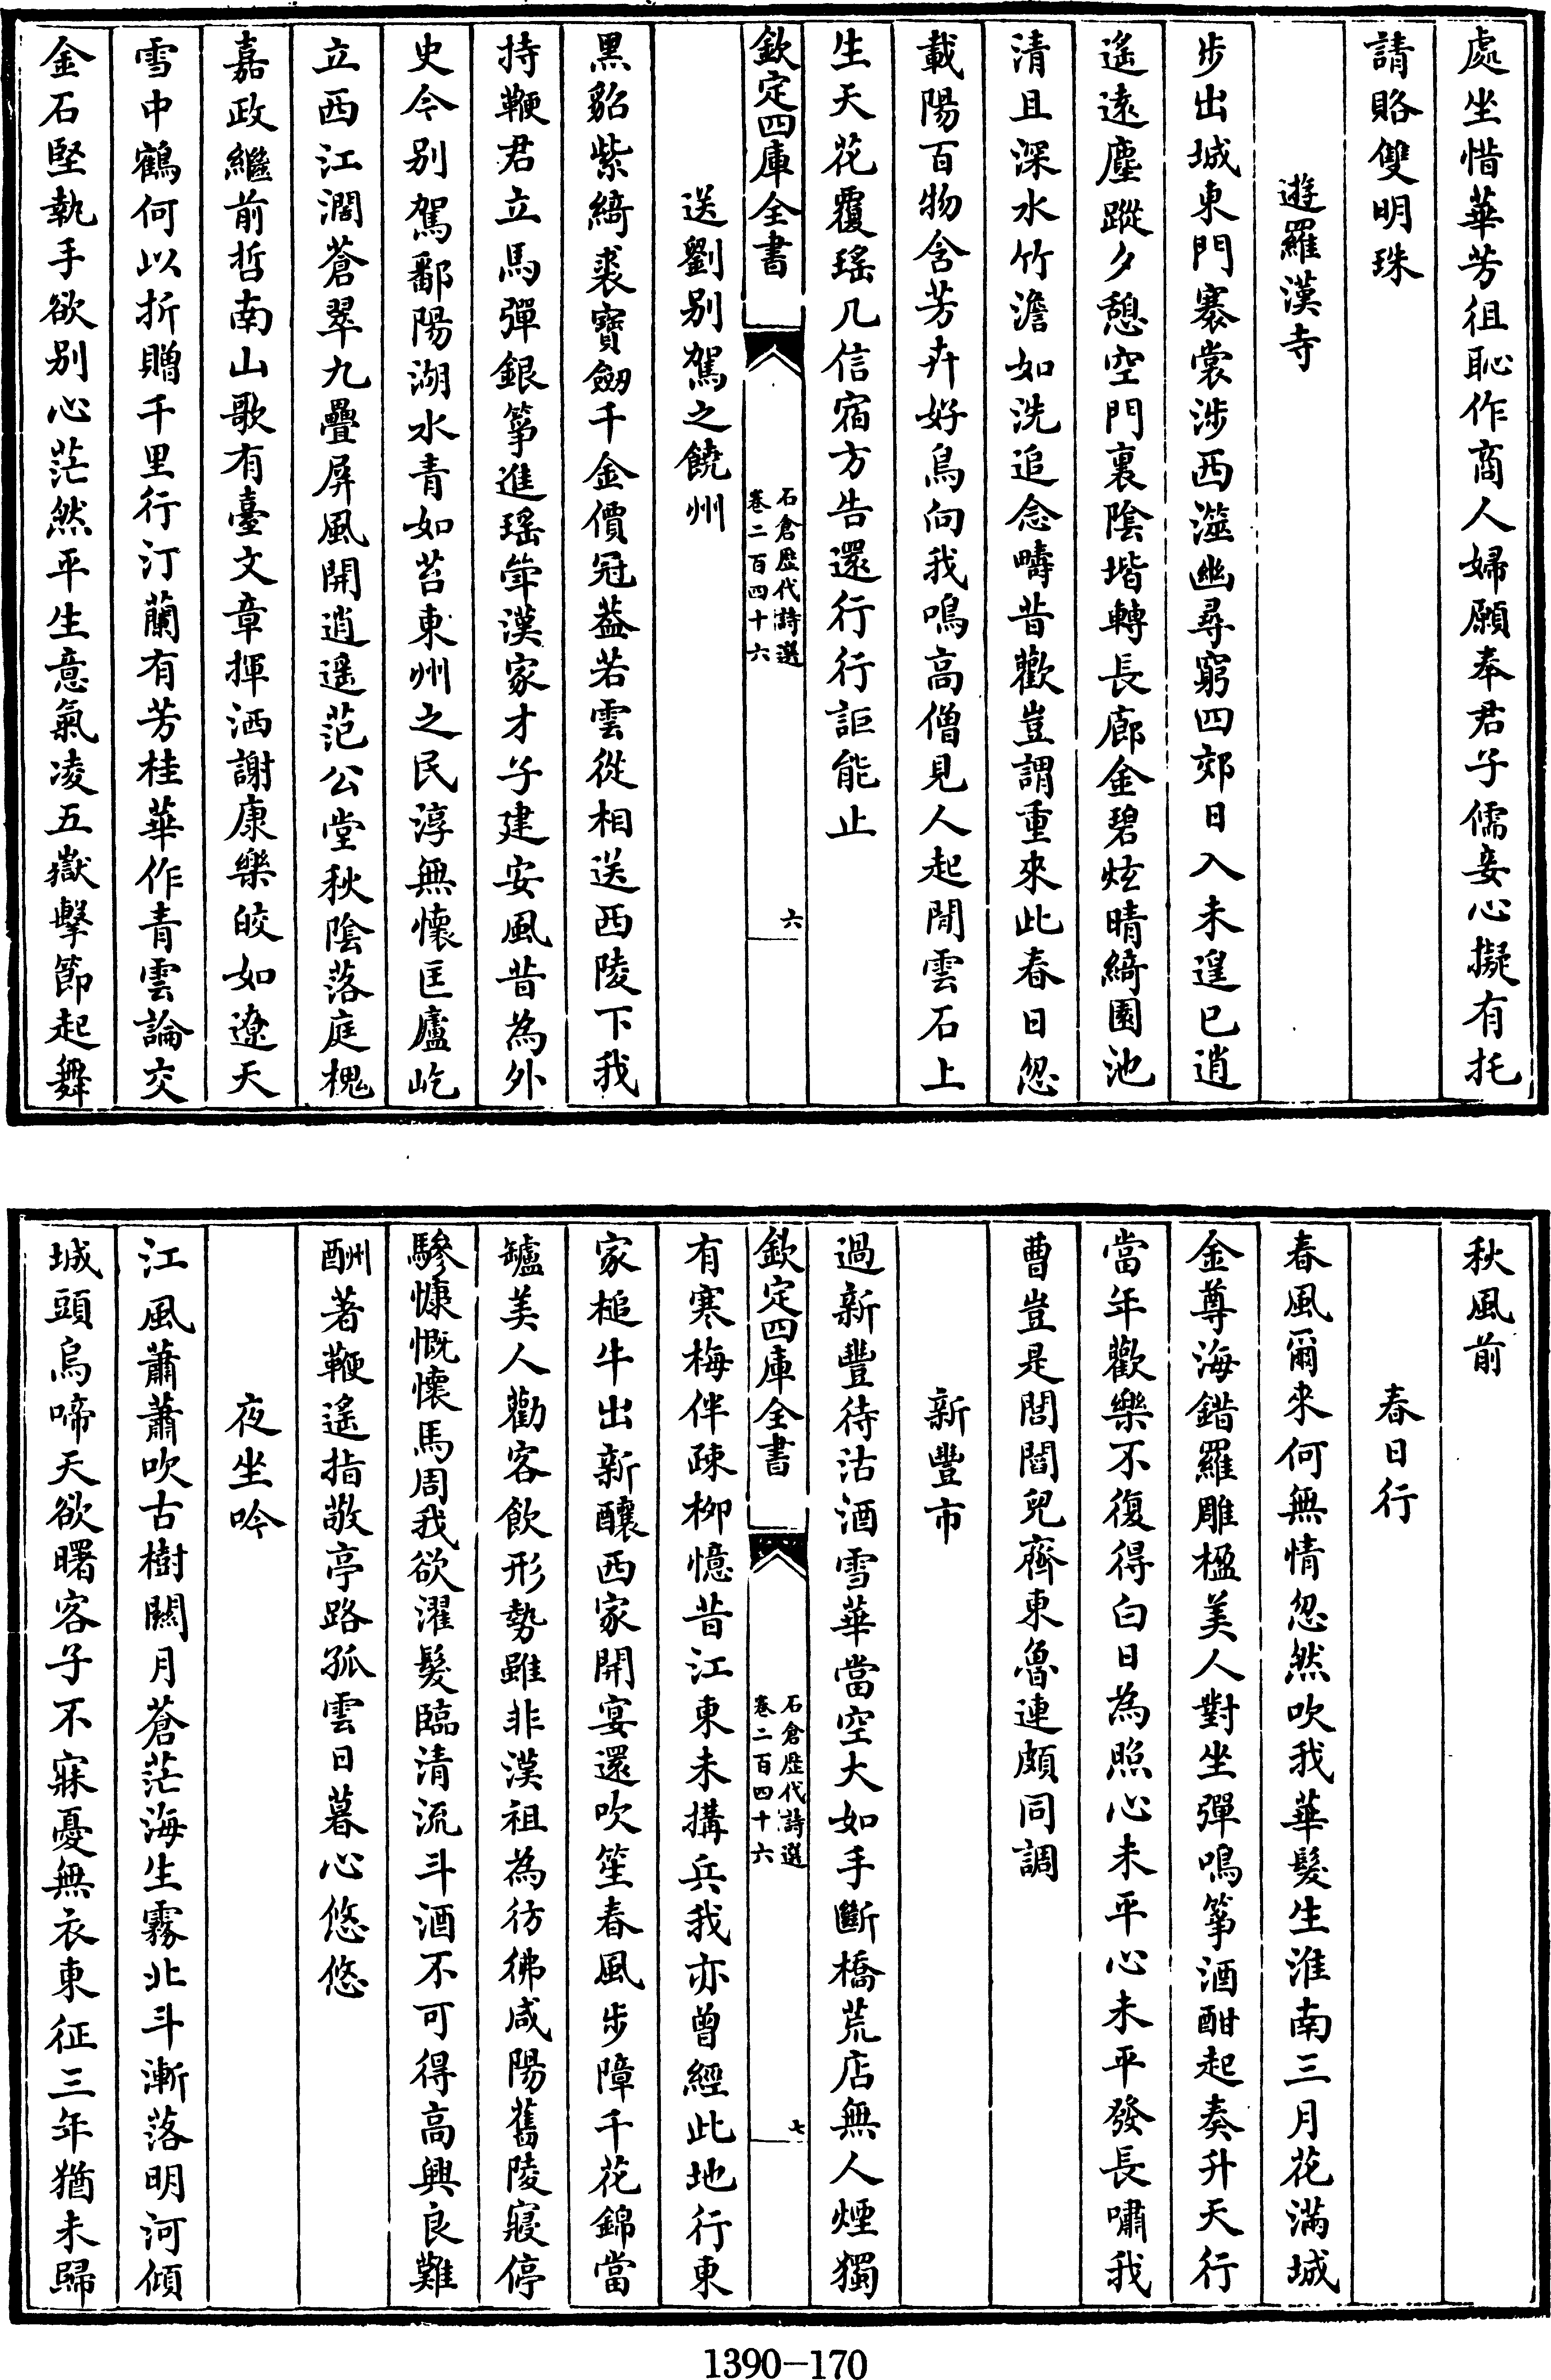 處坐惜華芳徂恥作商人婦願奉君子儒妾心擬有托
請賂雙明珠
遊羅漢寺
步出城東門褰裳涉西澨幽尋窮四郊日入未遑已逍
遙遠塵蹤夕憩空門裏陰堦轉長廊金碧炫晴綺園池
清且深水竹澹如洗追念疇昔歡豈謂重來此春日忽
載陽百物含芳卉好鳥向我鳴高僧見人起閒雲石上
生天花覆瑤几信宿方告還行行詎能止
欽定四庫全書
石倉歷代詩選
卷二百四十六
六
送劉别駕之饒州
黑貂紫綺裘寶劒千金價冠蓋若雲從相送西陵下我
持鞭君立馬彈銀箏進瑤斝漢家才子建安風昔為外
史今别駕鄱陽湖水青如苔東州之民淳無懷匡廬屹
立西江濶蒼翠九疊屏風開逍遥范公堂秋陰落庭槐
嘉政繼前哲南山歌有臺文章揮洒謝康樂皎如遼天
雪中鶴何以折贈千里行汀蘭有芳桂華作青雲論交
金石堅執手欲别心茫然平生意氣凌五嶽擊節起舞
秋風前
春日行
春風爾來何無情忽然吹我華髮生淮南三月花滿城
金尊海錯羅雕楹美人對坐彈鳴箏酒酣起奏升天行
當年歡樂不復得白日為照心未平心未平發長嘯我
曹豈是閭閻兒齊東魯連頗同調
新豐市
過新豐待沽酒雪華當空大如手斷橋荒店無人煙獨
欽定四庫全書
石倉歷代詩選
卷二百四十六
七
有寒梅伴疎柳憶昔江東未搆兵我亦曾經此地行東
家槌牛出新釀西家開宴還吹笙春風步障千花錦當
罏美人勸客飲形勢雖非漢祖為彷彿咸陽舊陵寢停
驂慷慨懷馬周我欲濯髮臨清流斗酒不可得高興良難
酬著鞭遙指敬亭路孤雲日暮心悠悠
夜坐吟
江風蕭蕭吹古樹關月蒼茫海生霧北斗漸落明河傾
城頭烏啼天欲曙客子不寐憂無衣東征三年猶未歸
1390—170